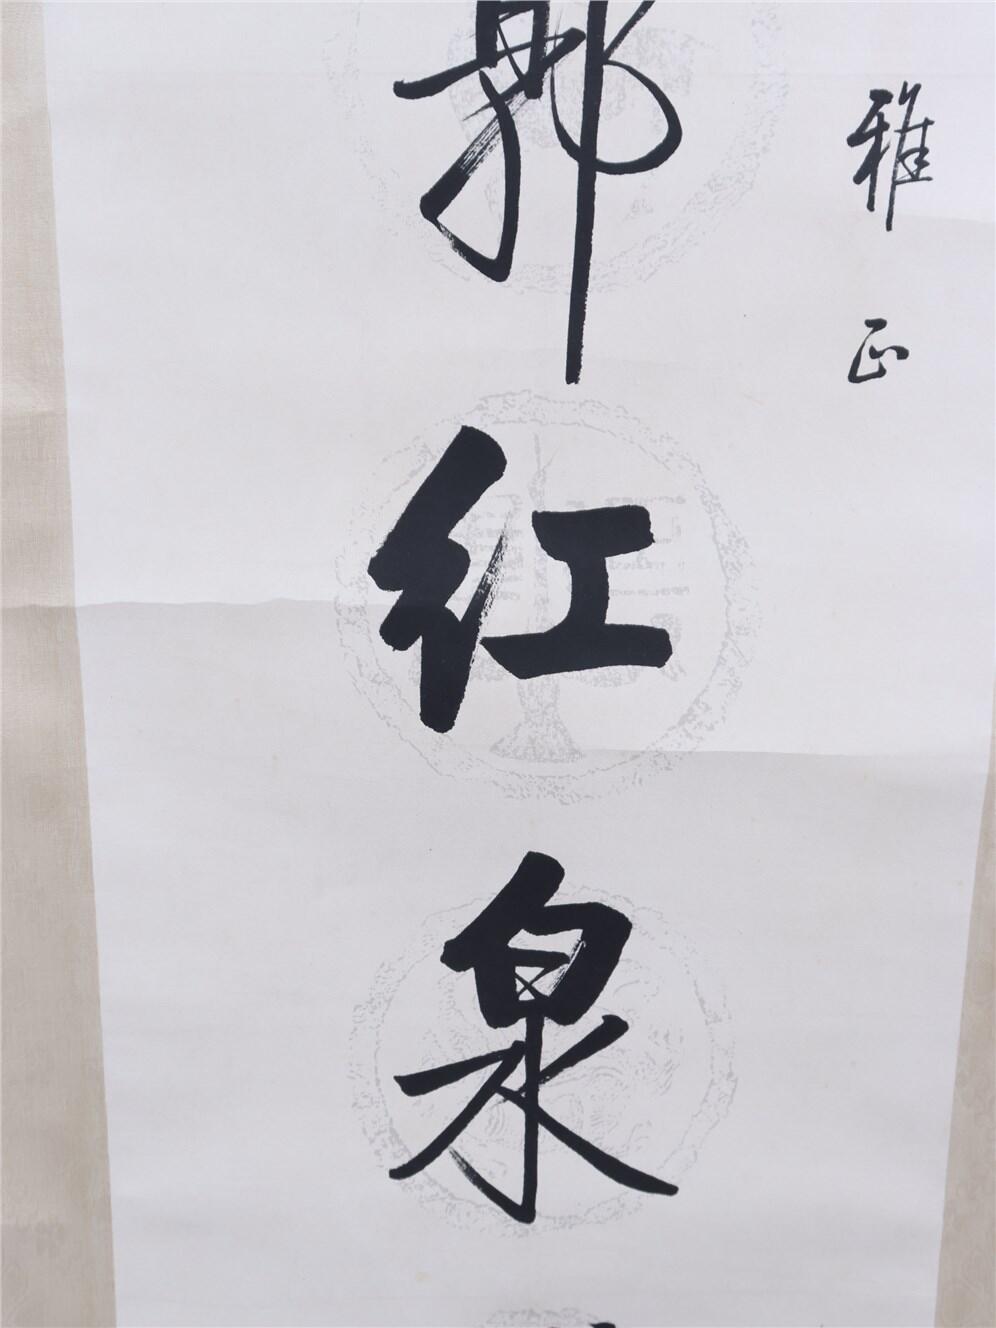 雅正
郭红泉